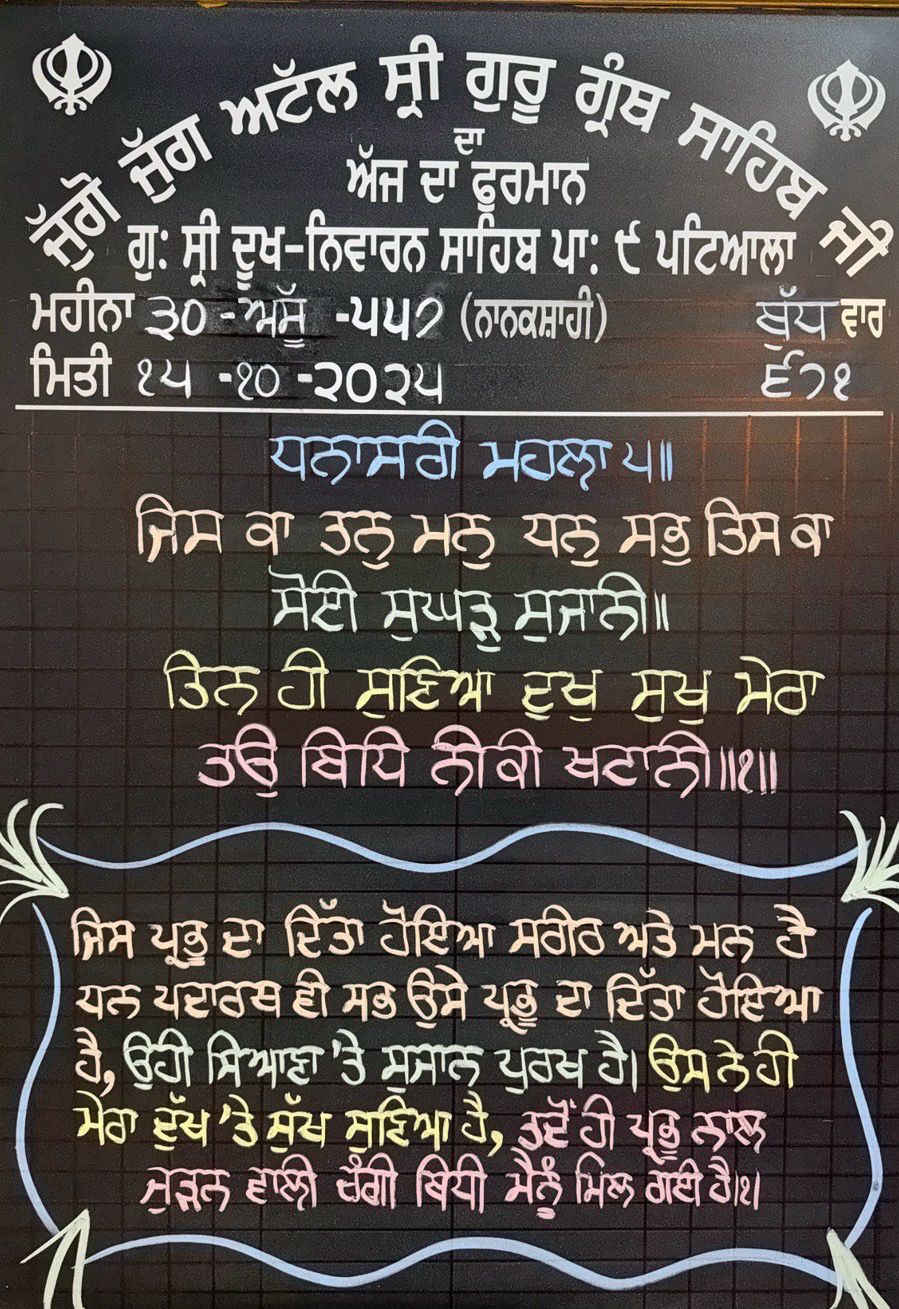 ਜੁੱਗੋ ਜੁੱਗ ਅਟੱਲ ਸ੍ਰੀ ਗੁਰੂ ਗ੍ਰੰਥ ਸਾਹਿਬ ਜੀ
ਦਾ
ਅੱਜ ਦਾ ਫੁਰਮਾਨ
ਗੁ: ਸ੍ਰੀ ਦੂਖ-ਨਿਵਾਰਨ ਸਾਹਿਬ ਪਾ: ੯ ਪਟਿਆਲਾ
ਮਹੀਨਾ ੩੦ - ਅੱਸੂ -੫੫੭ (ਨਾਨਕਸ਼ਾਹੀ) ਬੁੱਧ ਵਾਰ
ਮਿਤੀ ੧੫ -੧੦ -੨੦੨੫ ੬੭੧
ਧਨਾਸਰੀ ਮਹਲਾ ੫॥
ਜਿਸ ਕਾ ਤਨੁ ਮਨੁ ਧਨੁ ਸਭੁ ਤਿਸ ਕਾ
ਸੋਈ ਸੁਘੜੁ ਸੁਜਾਨੀ॥
ਤਿਨ ਹੀ ਸੁਣਿਆ ਦੁਖੁ ਸੁਖੁ ਮੇਰਾ
ਤਉ ਬਿਧਿ ਨੀਕੀ ਖਟਾਨੀ॥੧॥
ਜਿਸ ਪ੍ਰਭੂ ਦਾ ਦਿੱਤਾ ਹੋਇਆ ਸਰੀਰ ਅਤੇ ਮਨ ਹੈ
ਧਨ ਪਦਾਰਥ ਵੀ ਸਭ ਉਸੇ ਪ੍ਰਭੂ ਦਾ ਦਿੱਤਾ ਹੋਇਆ
ਹੈ, ਉਹੀ ਸਿਆਣਾ 'ਤੇ ਸੁਜਾਨ ਪੁਰਖ ਹੈ। ਉਸ ਨੇ ਹੀ
ਮੇਰਾ ਦੁੱਖ 'ਤੇ ਸੁੱਖ ਸੁਣਿਆ ਹੈ, ਤਦੋਂ ਹੀ ਪ੍ਰਭੂ ਨਾਲ
ਜੁੜਨ ਵਾਲੀ ਚੰਗੀ ਬਿਧੀ ਮੈਨੂੰ ਮਿਲ ਗਈ ਹੈ।੧।